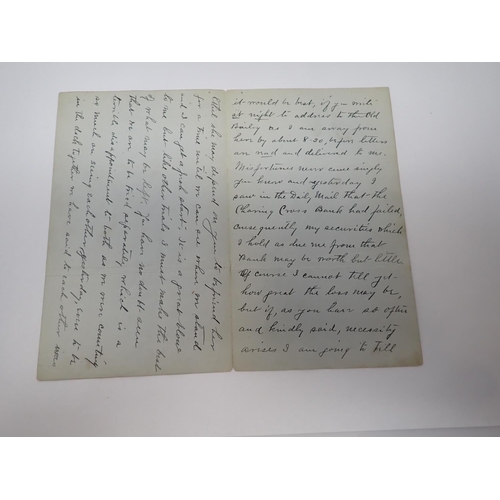 it would be best, if you write
at night to address to the Old
Baily as I am away from
here by about 8-20, before letters
are read and delivered to me.
Misfortunes never cease simply
you know and yesterday I
saw in the Daily Mail that the
Charing Cross Bank had failed,
consequently my securities which
I hold as due me from that
Bank may be worth but little
Of course I cannot tell yet
how great the loss may be,
but if, as you have so often
and kindly said, necessity
arises I am going to tell
Ethel she may depend on you to befriend her
for a time until we can see where we stand
and I can get a fresh start. It is a great blow
to me but like other trials I must make the best
of what may be left. You have no doubt seen
that we are to be tried separately, which is a
terrible disappointment to both as we were counting
as much on seeing each other yesterday, even to be
in the dock together we have said to each other